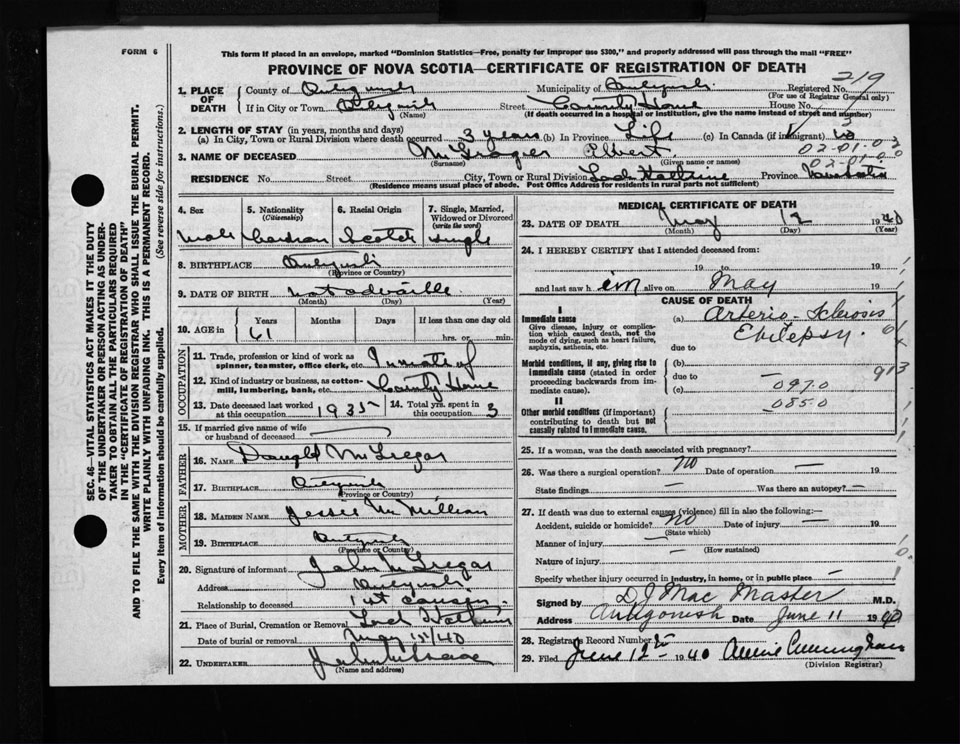 FORM 6
This form if placed in an envelope, marked "Dominion Statistics—Free, penalty for improper use $300," and properly addressed will pass through the mail "FREE"
PROVINCE OF NOVA SCOTIA—CERTIFICATE OF REGISTRATION OF DEATH
219
1. PLACE OF DEATH
County of Antigonish Municipality of Antigonish Registered No.
(For use of Registrar General only)
If in City or Town Antigonish Street County Home House No.
(Name) (If death occurred in a hospital or institution, give the name instead of street and number)
2. LENGTH OF STAY (in years, months and days)
(a) In City, Town or Rural Division where death occurred 3 years (b) In Province Life (c) In Canada (if immigrant)
02-01-0
3. NAME OF DECEASED McGregor Elbert
(Surname) (Given name or names)
02-01-0
RESIDENCE No. Street City, Town or Rural Division Loch Katrine Province Nova Scotia
(Residence means usual place of abode. Post Office Address for residents in rural parts not sufficient)
4. Sex
Male
5. Nationality
(Citizenship)
Canadian
6. Racial Origin
Scotch
7. Single, Married,
Widowed or Divorced
(write the word)
Single
8. BIRTHPLACE Antigonish
(Province or Country)
9. DATE OF BIRTH not advisable
(Month) (Day) (Year)
10. AGE in
Years Months Days If less than one day old
61 hrs. or min.
OCCUPATION
11. Trade, profession or kind of work as
spinner, teamster, office clerk, etc. Inmate of
12. Kind of industry or business, as cotton-
mill, lumbering, bank, etc. County Home
13. Date deceased last worked
at this occupation 1935
14. Total yrs. spent in
this occupation 3
15. If married give name of wife
or husband of deceased
FATHER
16. NAME McGregor
17. BIRTHPLACE Antigonish
(Province or Country)
MOTHER
18. MAIDEN NAME Jessie McMillian
19. BIRTHPLACE Antigonish
(Province or Country)
20. Signature of informant John McGregor
Address Antigonish
Relationship to deceased 1st cousin
21. Place of Burial, Cremation or Removal Loch Katrine
Date of burial or removal May 15/40
22. UNDERTAKER
(Name and address)
MEDICAL CERTIFICATE OF DEATH
23. DATE OF DEATH May 12 1940
(Month) (Day) (Year)
24. I HEREBY CERTIFY that I attended deceased from:
19 to 19
and last saw h im alive on May 19
CAUSE OF DEATH
I
Immediate cause
Give disease, injury or complica-
tion which caused death, not the
mode of dying, such as heart failure,
asphyxia, asthenia, etc.
(a) Arterio-Sclerosis
Epilepsy
due to
Morbid conditions, if any, giving rise to
immediate cause (stated in order
proceeding backwards from im-
mediate cause).
(b)
due to
(c) 097.0
085.0
913
II
Other morbid conditions (if important)
contributing to death but not
causally related to immediate cause.
25. If a woman, was the death associated with pregnancy?
26. Was there a surgical operation? no Date of operation — 19
State findings — Was there an autopsy? —
27. If death was due to external causes (violence) fill in also the following:—
Accident, suicide or homicide? no Date of injury — 19
(State which)
Manner of injury —
(How sustained)
Nature of injury
Specify whether injury occurred in industry, in home, or in public place —
Signed by D J MacMaster M.D.
Address Antigonish Date June 11 1940
28. Registrars Record Number
29. Filed June 12th 1940 Annie Cunningham
(Division Registrar)
SEC. 46—VITAL STATISTICS ACT MAKES IT THE DUTY
OF THE UNDERTAKER OR PERSON ACTING AS UNDER-
TAKER TO OBTAIN ALL THE PARTICULARS REQUIRED
IN THE "CERTIFICATE OF REGISTRATION OF DEATH"
AND TO FILE THE SAME WITH THE DIVISION REGISTRAR WHO SHALL ISSUE THE BURIAL PERMIT.
WRITE PLAINLY WITH UNFADING INK. THIS IS A PERMANENT RECORD.
Every item of information should be carefully supplied. (See reverse side for instructions.)